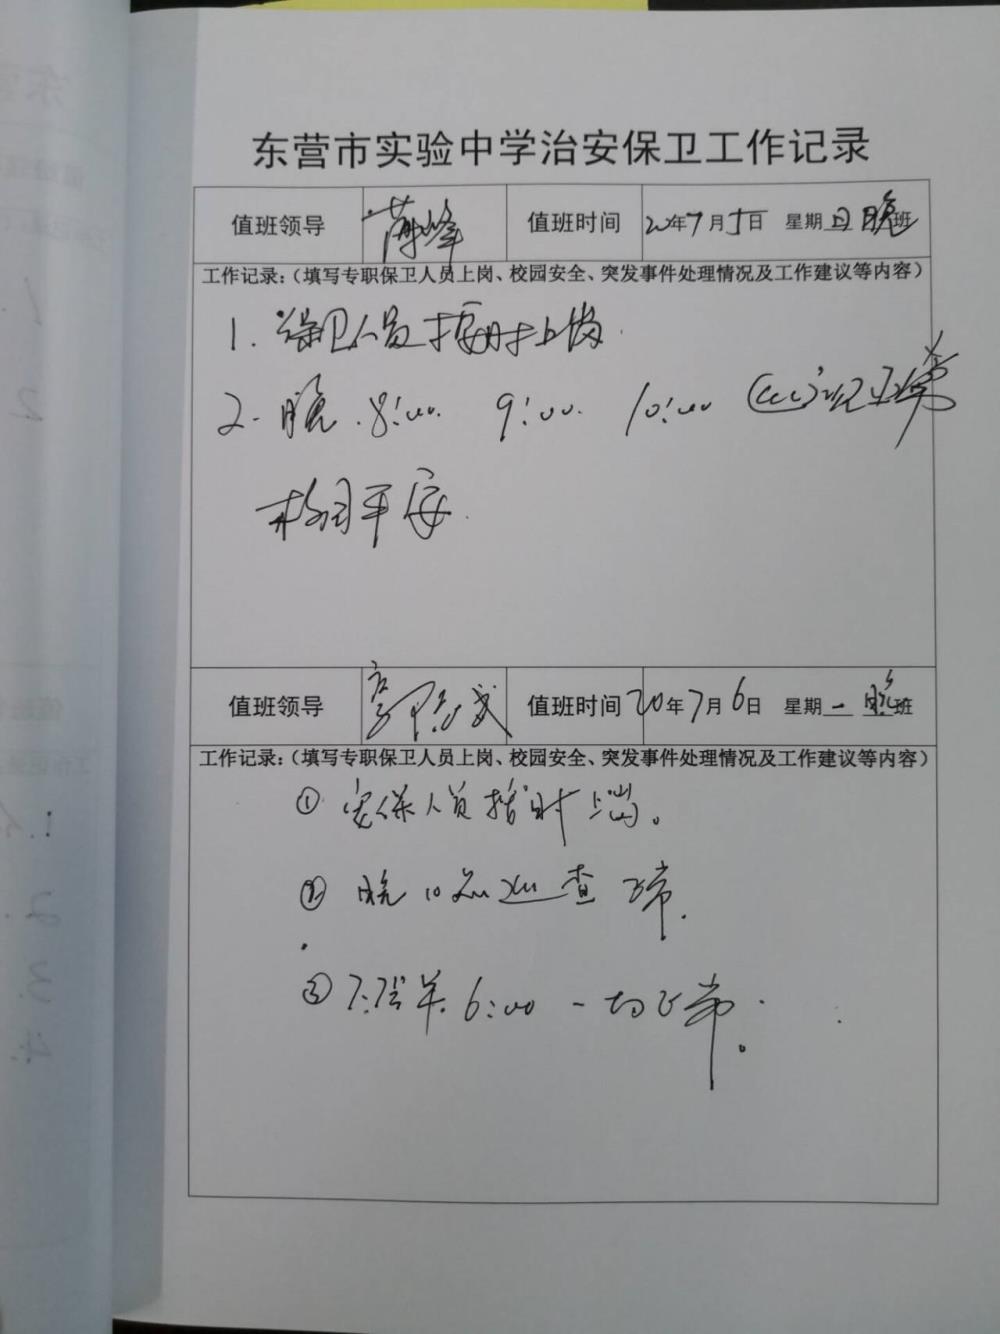 东营市实验中学治安保卫工作记录
值班领导 薄峰 值班时间 20年7月5日 星期日晚班
工作记录：（填写专职保卫人员上岗、校园安全、突发事件处理情况及工作建议等内容）
1. 保卫人员按时上岗.
2. 晚.8:00. 9:00. 10:00 正常
校园平安.
值班领导 值班时间 20年7月6日 星期一晚班
工作记录：（填写专职保卫人员上岗、校园安全、突发事件处理情况及工作建议等内容）
① 安保人员按时上岗。
② 晚10点巡查正常.
③ 6:00 一切正常.